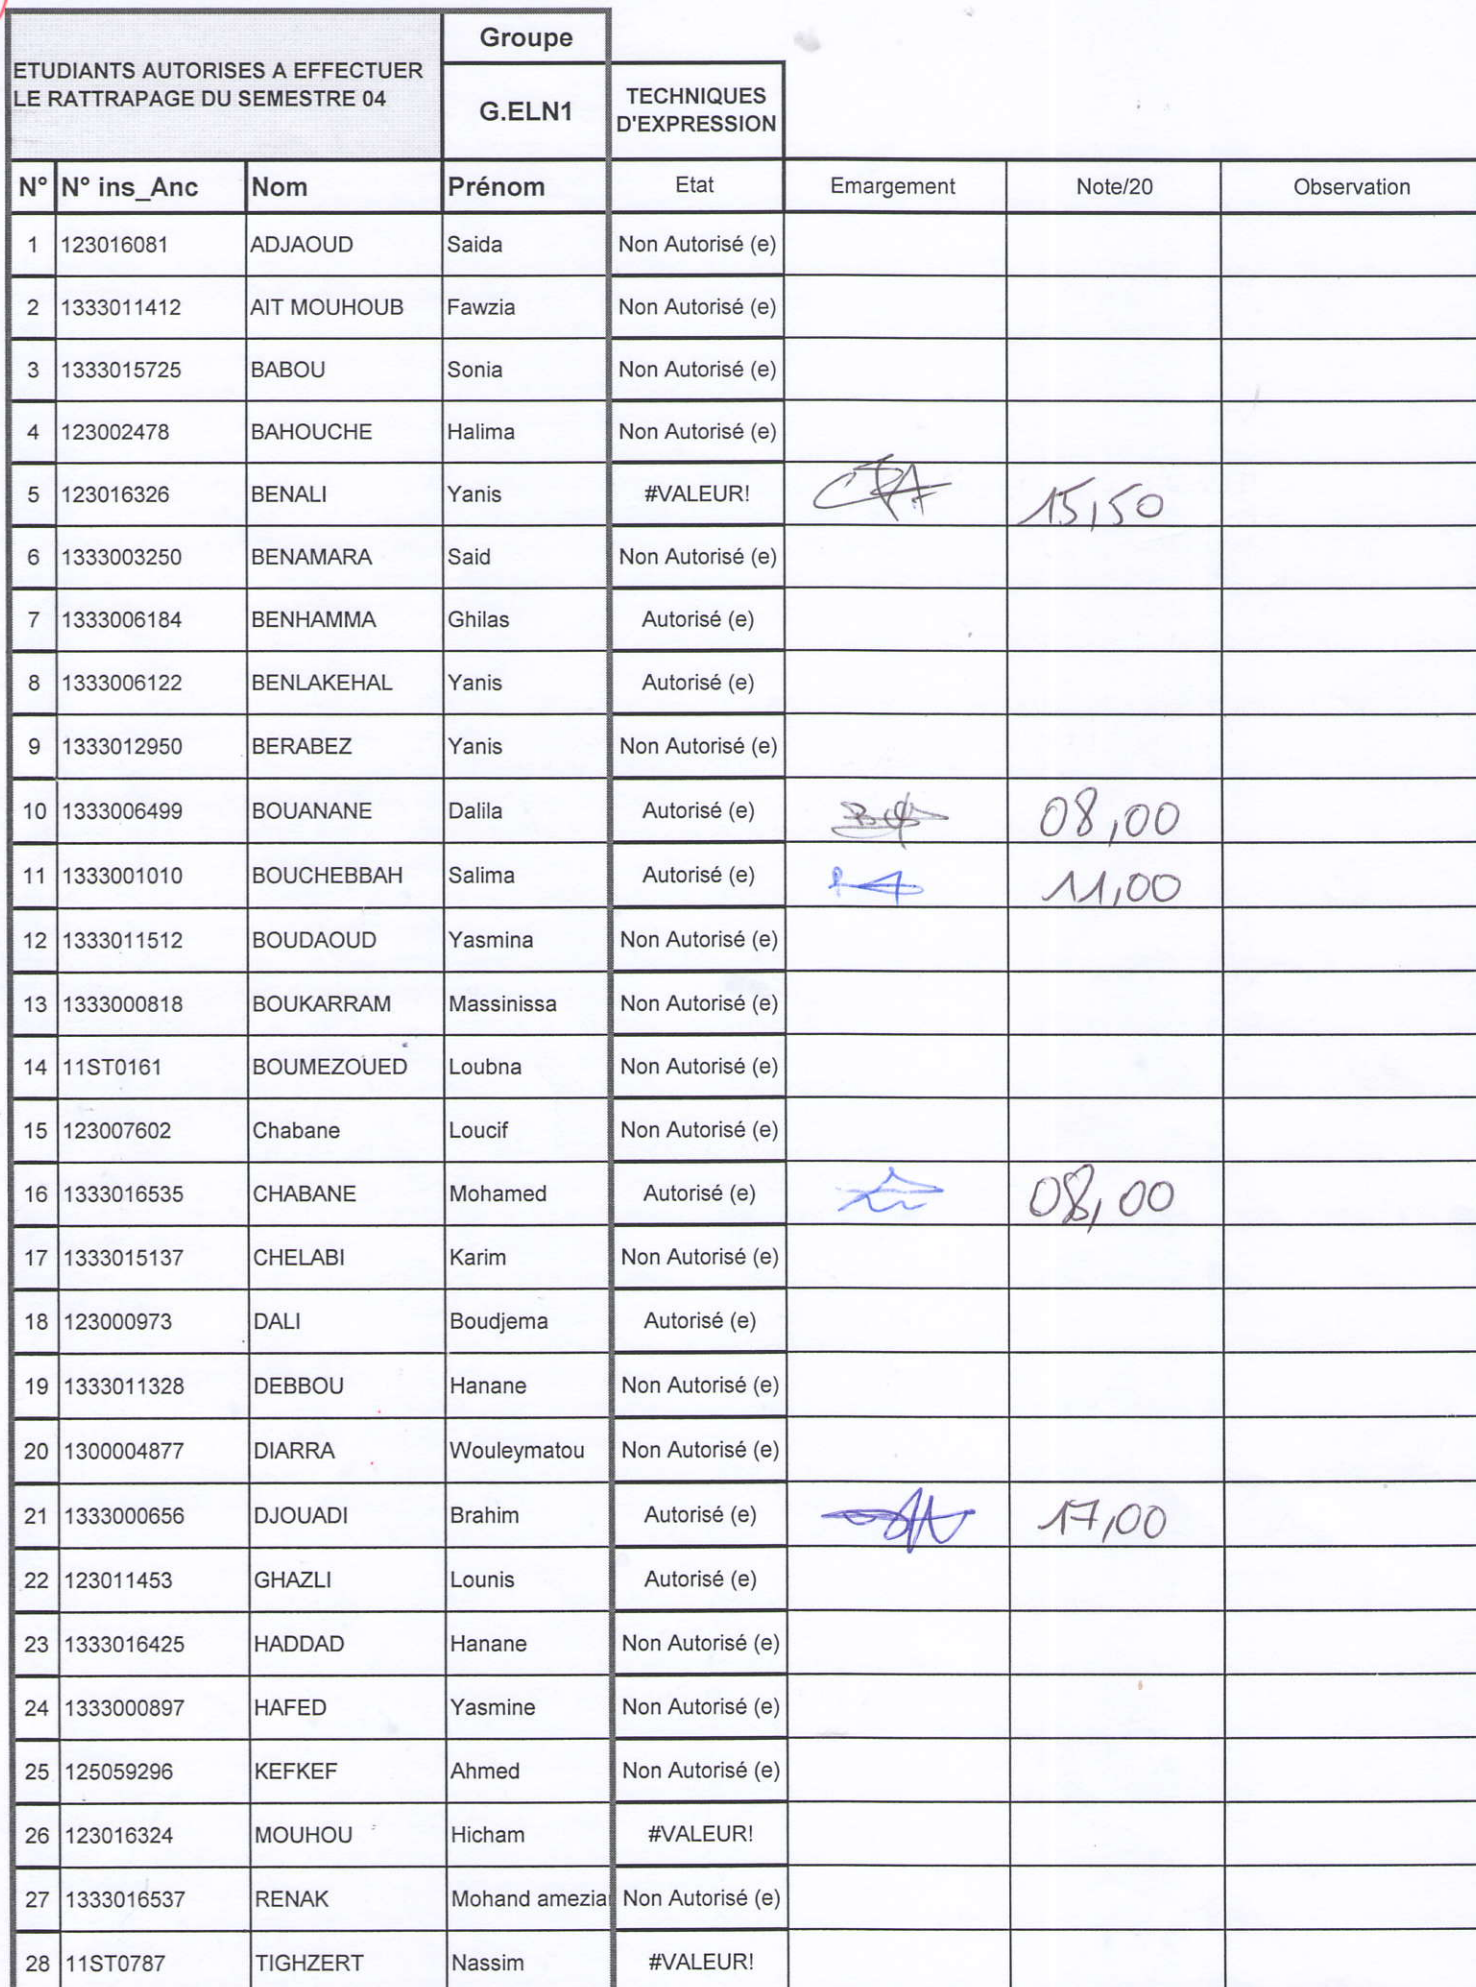 Groupe
ETUDIANTS AUTORISES A EFFECTUER
LE RATTRAPAGE DU SEMESTRE 04
G.ELN1
TECHNIQUES
D'EXPRESSION
N° N° ins_Anc Nom Prénom Etat Emargement Note/20 Observation
1 123016081 ADJAOUD Saida Non Autorisé (e)
2 1333011412 AIT MOUHOUB Fawzia Non Autorisé (e)
3 1333015725 BABOU Sonia Non Autorisé (e)
4 123002478 BAHOUCHE Halima Non Autorisé (e)
5 123016326 BENALI Yanis #VALEUR! 15,50
6 1333003250 BENAMARA Said Non Autorisé (e)
7 1333006184 BENHAMMA Ghilas Autorisé (e)
8 1333006122 BENLAKEHAL Yanis Autorisé (e)
9 1333012950 BERABEZ Yanis Non Autorisé (e)
10 1333006499 BOUANANE Dalila Autorisé (e) 08,00
11 1333001010 BOUCHEBBAH Salima Autorisé (e) 11,00
12 1333011512 BOUDAOUD Yasmina Non Autorisé (e)
13 1333000818 BOUKARRAM Massinissa Non Autorisé (e)
14 11ST0161 BOUMEZOUED Loubna Non Autorisé (e)
15 123007602 Chabane Loucif Non Autorisé (e)
16 1333016535 CHABANE Mohamed Autorisé (e) 08,00
17 1333015137 CHELABI Karim Non Autorisé (e)
18 123000973 DALI Boudjema Autorisé (e)
19 1333011328 DEBBOU Hanane Non Autorisé (e)
20 1300004877 DIARRA Wouleymatou Non Autorisé (e)
21 1333000656 DJOUADI Brahim Autorisé (e) 17,00
22 123011453 GHAZLI Lounis Autorisé (e)
23 1333016425 HADDAD Hanane Non Autorisé (e)
24 1333000897 HAFED Yasmine Non Autorisé (e)
25 125059296 KEFKEF Ahmed Non Autorisé (e)
26 123016324 MOUHOU Hicham #VALEUR!
27 1333016537 RENAK Mohand amezia Non Autorisé (e)
28 11ST0787 TIGHZERT Nassim #VALEUR!